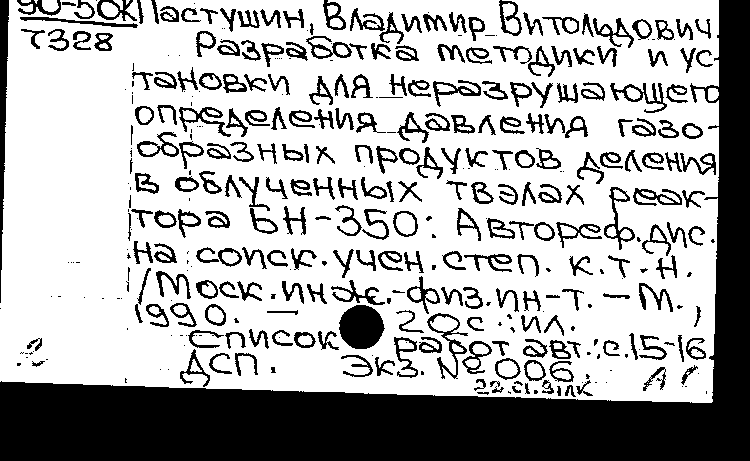 90-50К Пастушин, Владимир Витольдович.
7328 Разработка методики и ус-
тановки для неразрушающего
определения давления газо-
образных продуктов деления
в облученных твэлах реак-
тора БН-350: Автореф.дис.
на соиск.учен.степ. к.т.н.
/Моск.инж.-физ.ин-т. – М.,
1990. – 20с.:ил.
Список работ авт.:с.15-16.
ДСП. Экз. № 006.